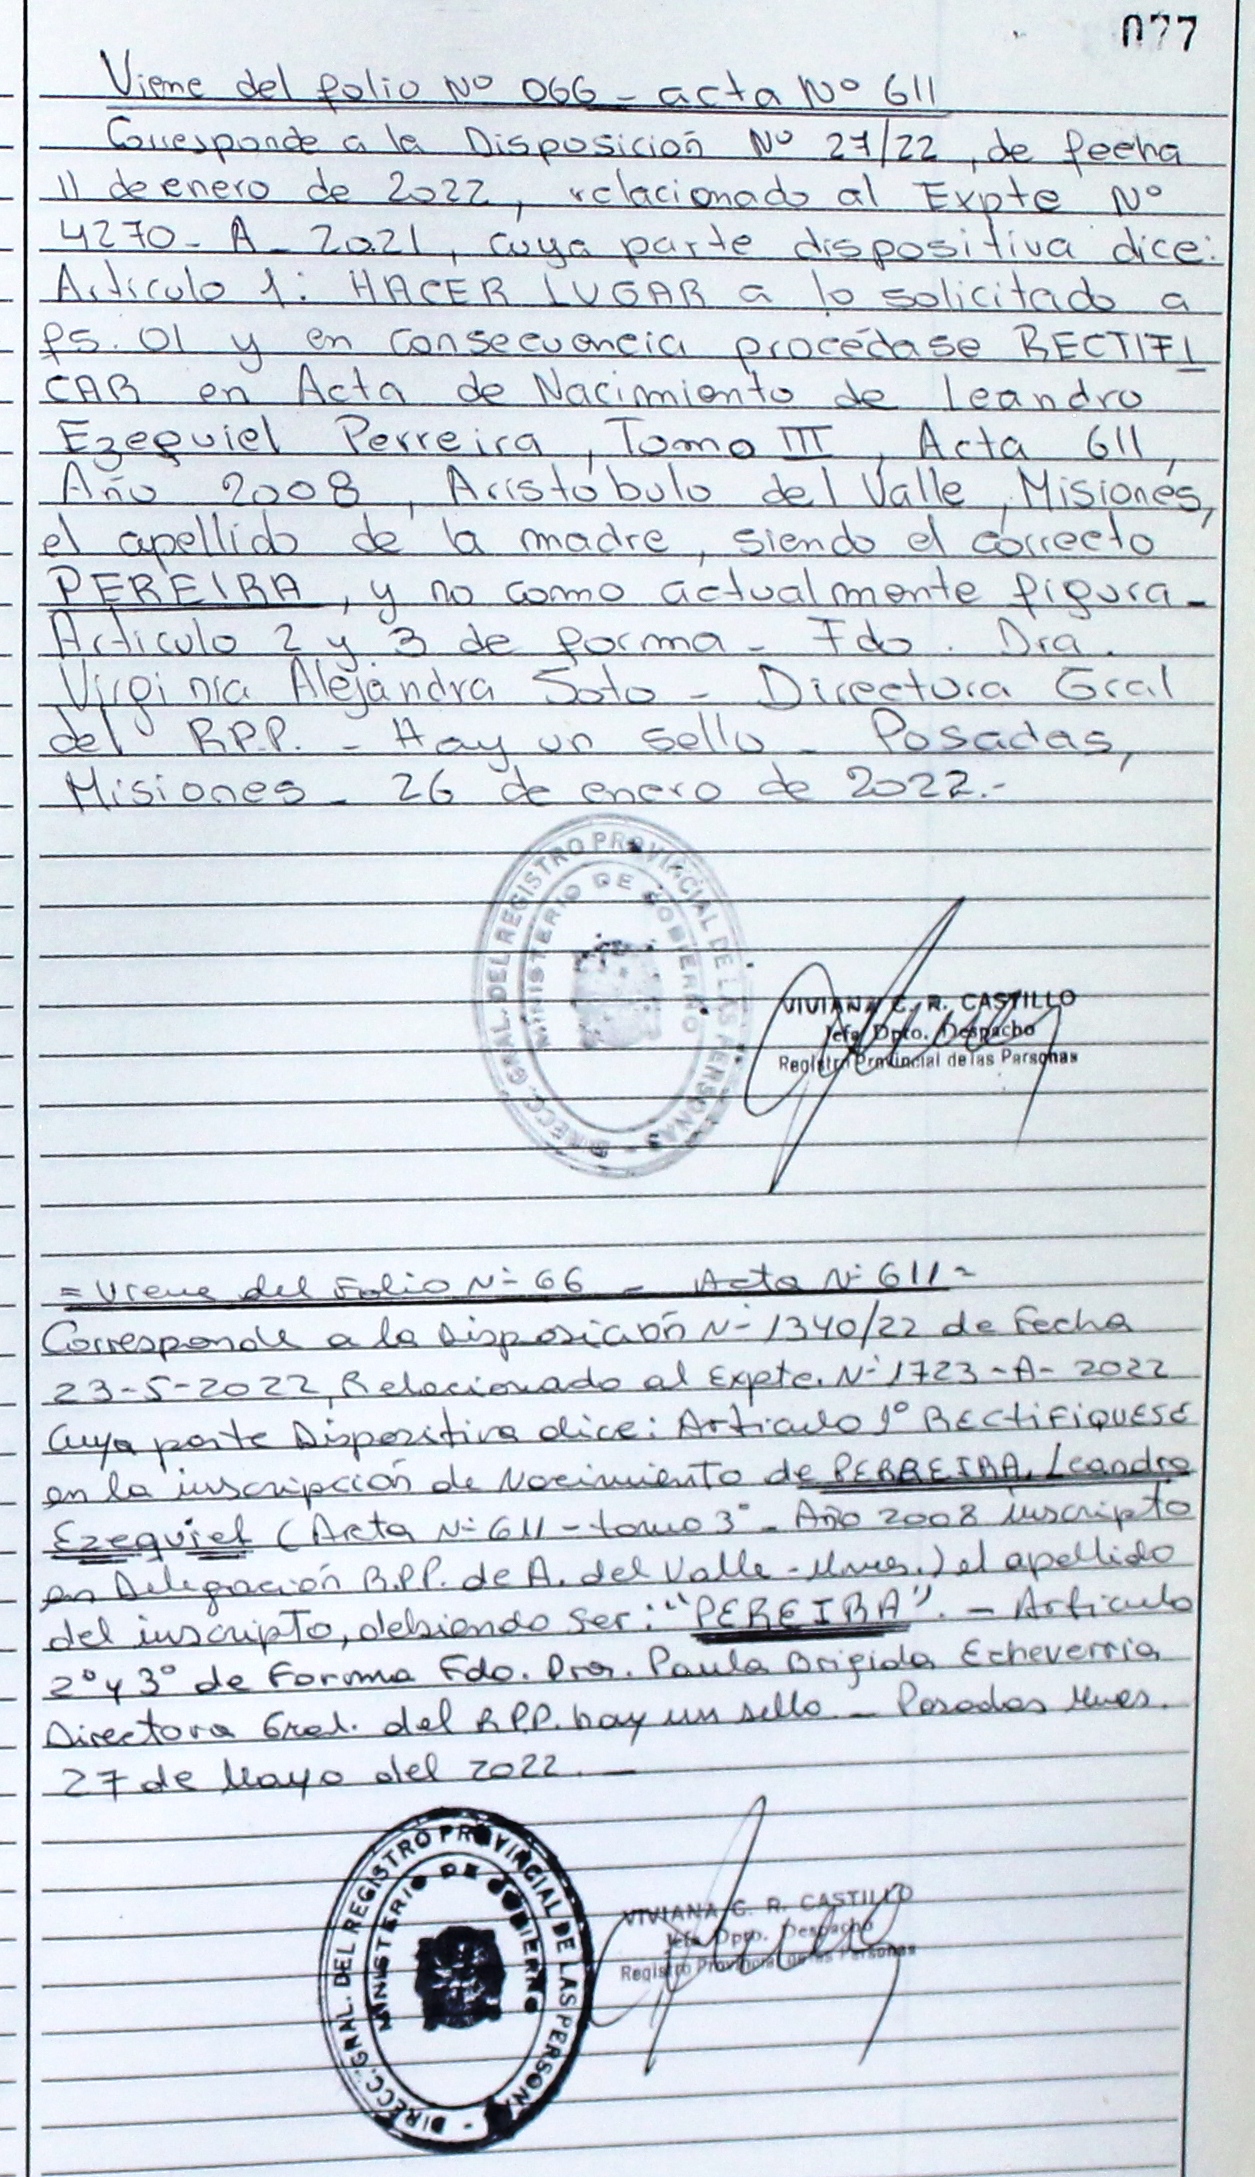 077
Viene del folio Nº 066 - acta Nº 611
Corresponde a la Disposición Nº 27/22, de fecha
11 de enero de 2022, relacionado al Expte Nº
4270 - A - 2021, cuya parte dispositiva dice:
Artículo 1: HACER LUGAR a lo solicitado a
fs. 01 y en consecuencia procédase RECTIFI
CAR en Acta de Nacimiento de Leandro
Ezequiel Perreira, Tomo III, Acta 611,
Año 2008, Aristóbulo del Valle, Misiones,
el apellido de la madre, siendo el correcto
PEREIRA, y no como actualmente figura -
Artículo 2 y 3 de forma - Fdo. Dra.
Virginia Alejandra Soto - Directora Gral
del R.P.P. - Hay un sello - Posadas,
Misiones - 26 de enero de 2022.-
DIRECC. GRAL. DEL REGISTRO PROVINCIAL DE LAS PERSONAS -
MINISTERIO DE GOBIERNO
VIVIANA G. R. CASTILLO
Jefa Dpto. Despacho
Registro Provincial de las Personas
= Viene del Folio Nº 66 - Acta Nº 611 =
Corresponde a la Disposición Nº 1340/22 de Fecha
23-5-2022, Relacionado al Expte. Nº 1723-A-2022
Cuya parte Dispositiva dice: Articulo 1º RECTIFIQUESE
en la inscripción de Nacimiento de PERREIRA, Leandro
Ezequiel (Acta Nº 611 - tomo 3º - Año 2008 inscripto
en Delegación R.P.P. de A. del Valle - Mnes.) el apellido
del inscripto, debiendo ser: "PEREIRA". - Articulo
2º y 3º de Forma Fdo. Dra. Paula Brigida Echeverria
Directora Gral. del R.P.P. hay un sello - Posadas Mnes.
27 de Mayo del 2022. -
DIRECC. GRAL. DEL REGISTRO PROVINCIAL DE LAS PERSONAS -
MINISTERIO DE GOBIERNO
VIVIANA G. R. CASTILLO
Jefa Dpto. Despacho
Registro Provincial de las Personas